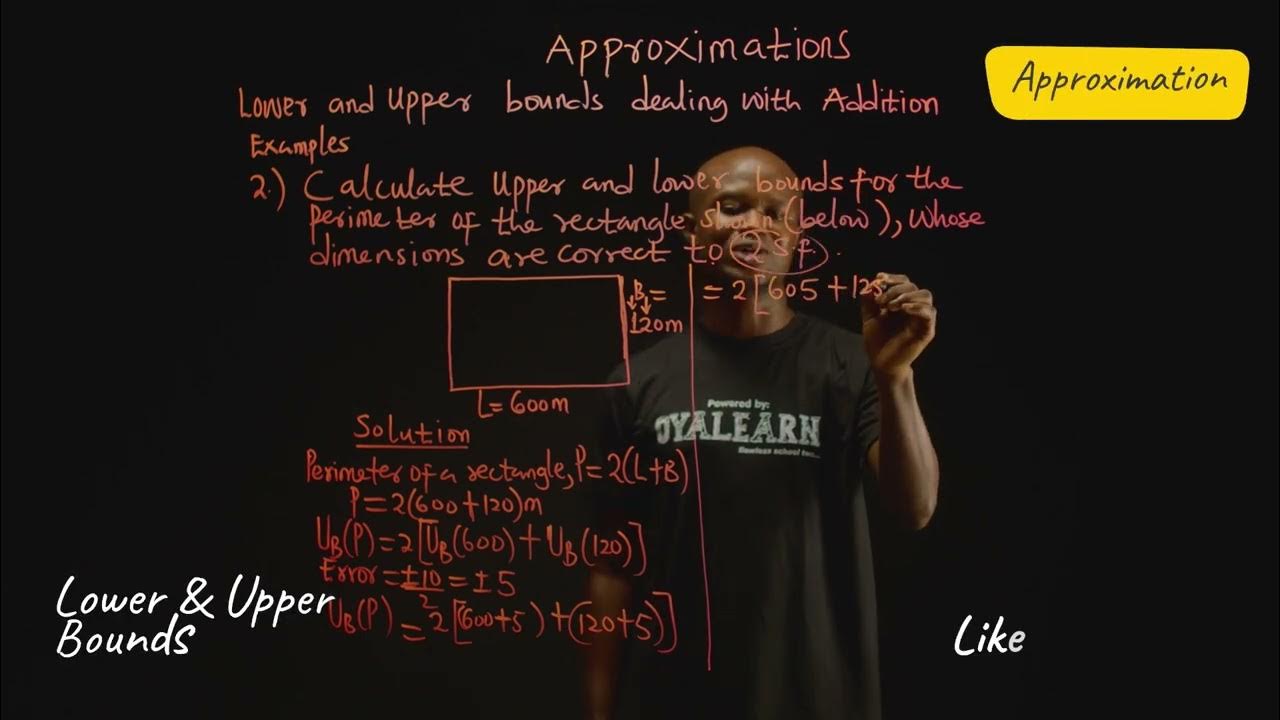 Approximations
Approximation
Lower and Upper bounds dealing with Addition
Examples
2.) Calculate Upper and lower bounds for the
perimeter of the rectangle shown (below), whose
dimensions are correct to 2 s.f.
B =
120m
L = 600m
= 2[605 + 125
Solution
Perimeter of a rectangle, P = 2(L+B)
P = 2(600+120)m
UB(P) = 2[UB(600) + UB(120)]
Error = ±10/2 = ±5
UB(P) = 2[(600+5) + (120+5)]
Powered by:
OYALEARN
flawless school
Lower & Upper
Bounds
Like